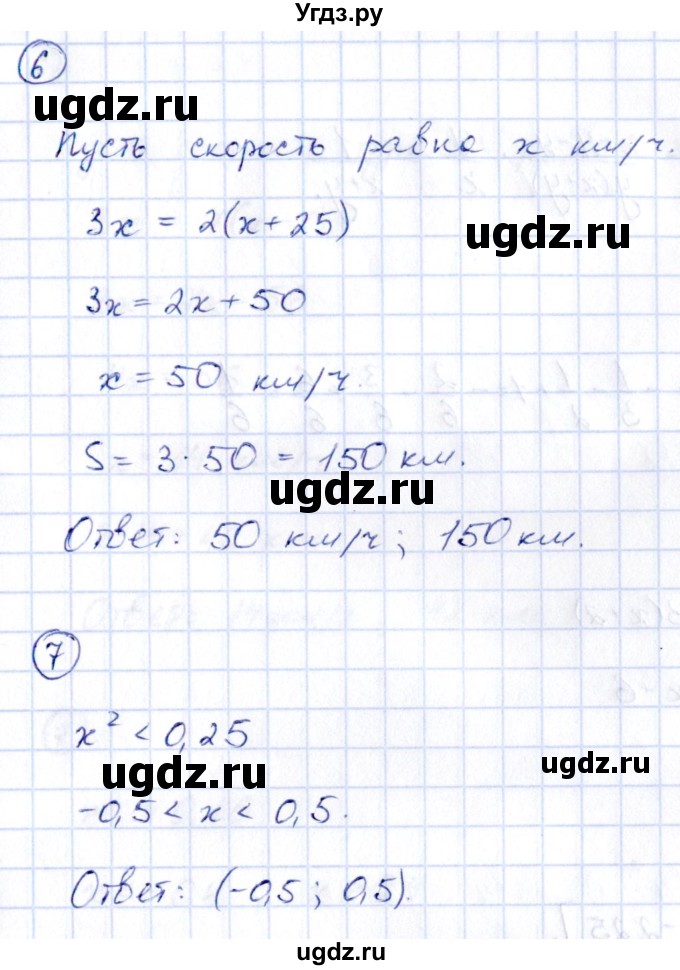 Угдз.ру
6
ugdz.ru
Пусть скорость равна x км/ч.
3x = 2(x+25)
ugdz.ru
3x = 2x + 50
x = 50 км/ч
S = 3·50 = 150 км.
ugdz.ru
Ответ: 50 км/ч; 150 км.
7
x² < 0,25
ugdz.ru
ugdz.ru
-0,5 < x < 0,5.
Ответ: (-0,5; 0,5).
ugdz.ru